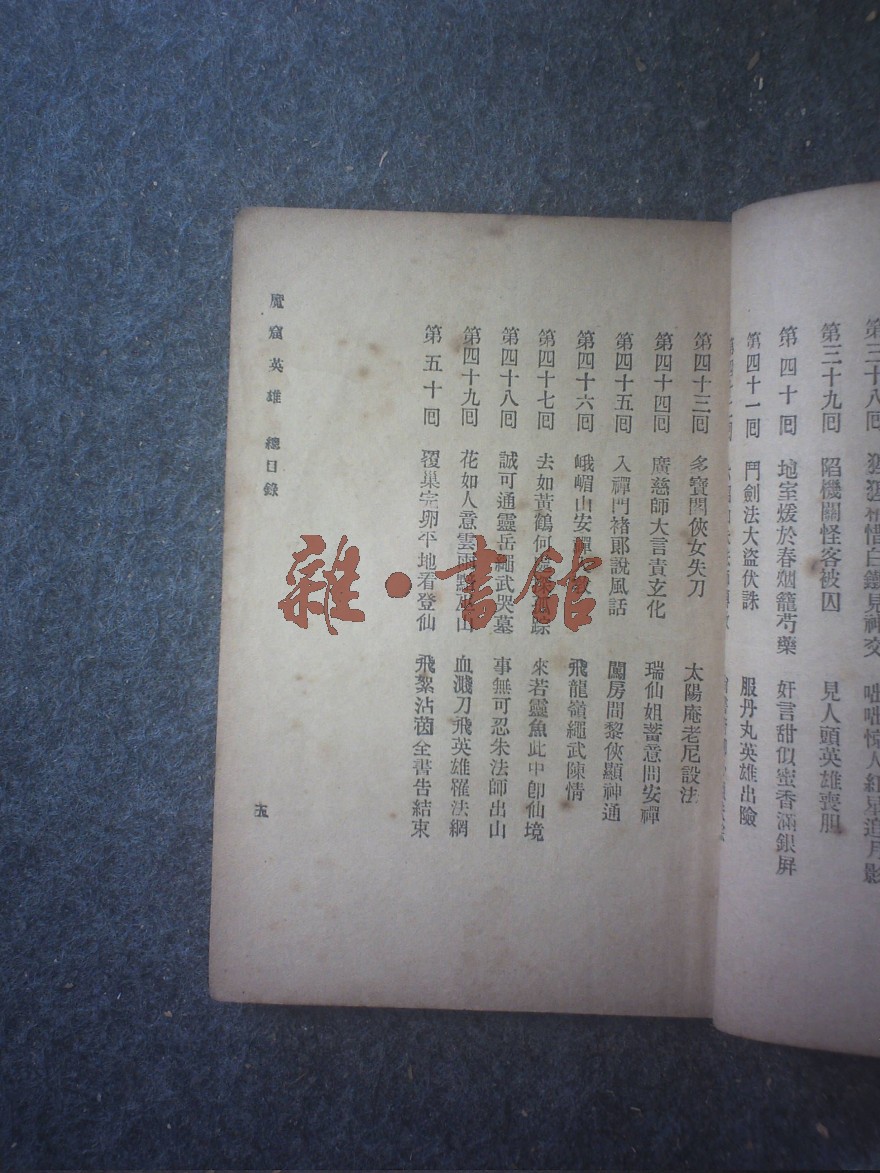 第三十八回　猩猩相惜白鐵見神交　咄咄驚人紅星道月影
第三十九回　陷機關怪客被囚　見人頭英雄喪胆
第四十回　地室煖於春烟籠芍藥　奸言甜似蜜香滿銀屏
第四十一回　鬥劍法大盜伏誅　服丹丸英雄出險
第四十三回　多寶閣俠女失刀　太陽庵老尼設法
第四十四回　廣慈師大言責玄化　瑞仙姐蓄意問安禪
第四十五回　入禪門褚郎說風話　闖房間黎俠顯神通
第四十六回　峨嵋山安禪　飛龍嶺繩武陳情
第四十七回　去如黃鶴何　踪　來若靈魚此中卽仙境
第四十八回　誠可通靈岳繩武哭墓　事無可忍朱法師出山
第四十九回　花如人意雲雨　山　血濺刀飛英雄羅法網
第五十回　覆巢完卵平地看登仙　飛絮沾茵全書告結束
魔窟英雄　總目錄
五
雜·書館